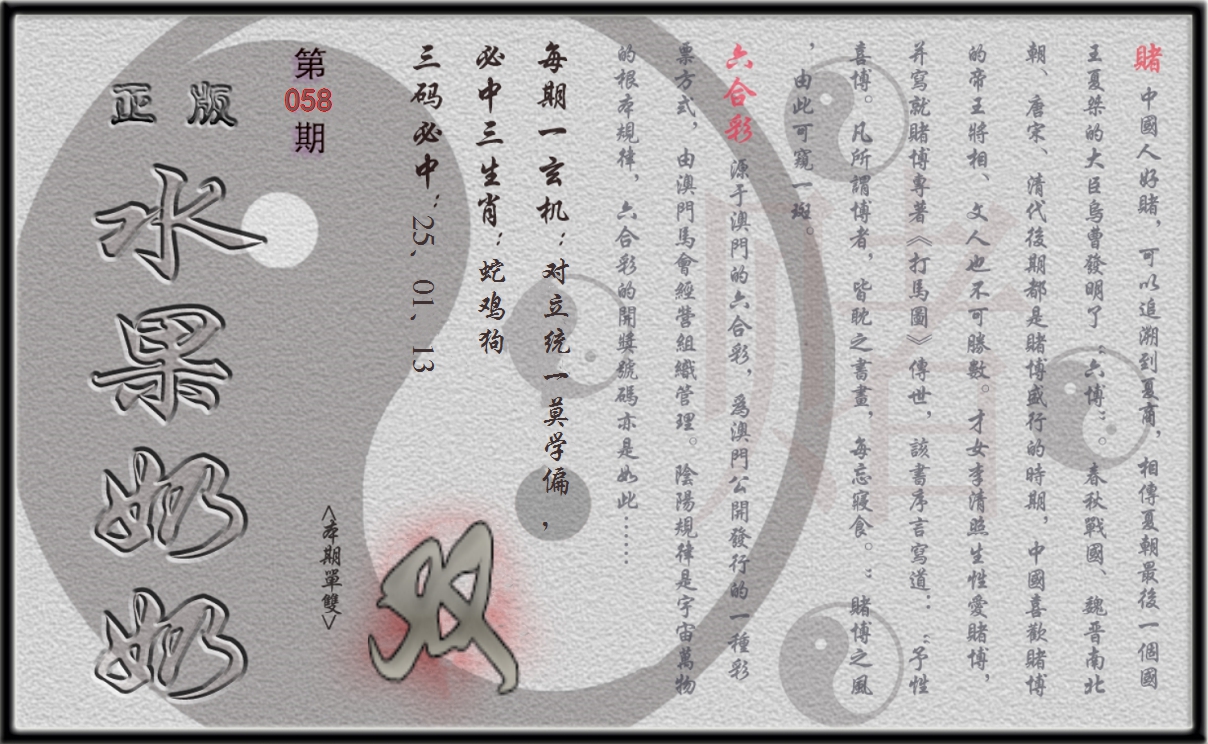 賭 中國人好賭，可以追溯到夏商，相傳夏朝最後一個國
王夏桀的大臣烏曹發明了“六博”。春秋戰國、魏晋南北
朝、唐宋、清代後期都是賭博盛行的時期，中國喜歡賭博
的帝王將相、文人也不可勝數。才女李清照生性愛賭博，
并寫就賭博專著《打馬圖》傳世，該書序言寫道：“予性
喜博。凡所謂博者，皆耽之書畫，每忘寢食。：賭博之風
，由此可窺一斑。
六合彩 源于澳門的六合彩，爲澳門公開發行的一種彩
票方式，由澳門馬會經營組織管理。陰陽規律是宇宙萬物
的根本規律，六合彩的開獎號碼亦是如此……
每期一玄机：对立统一莫学偏，
必中三生肖：蛇鸡狗
三码必中：25、01、13
<本期單雙>
双
第
058
期
正版
水果奶奶